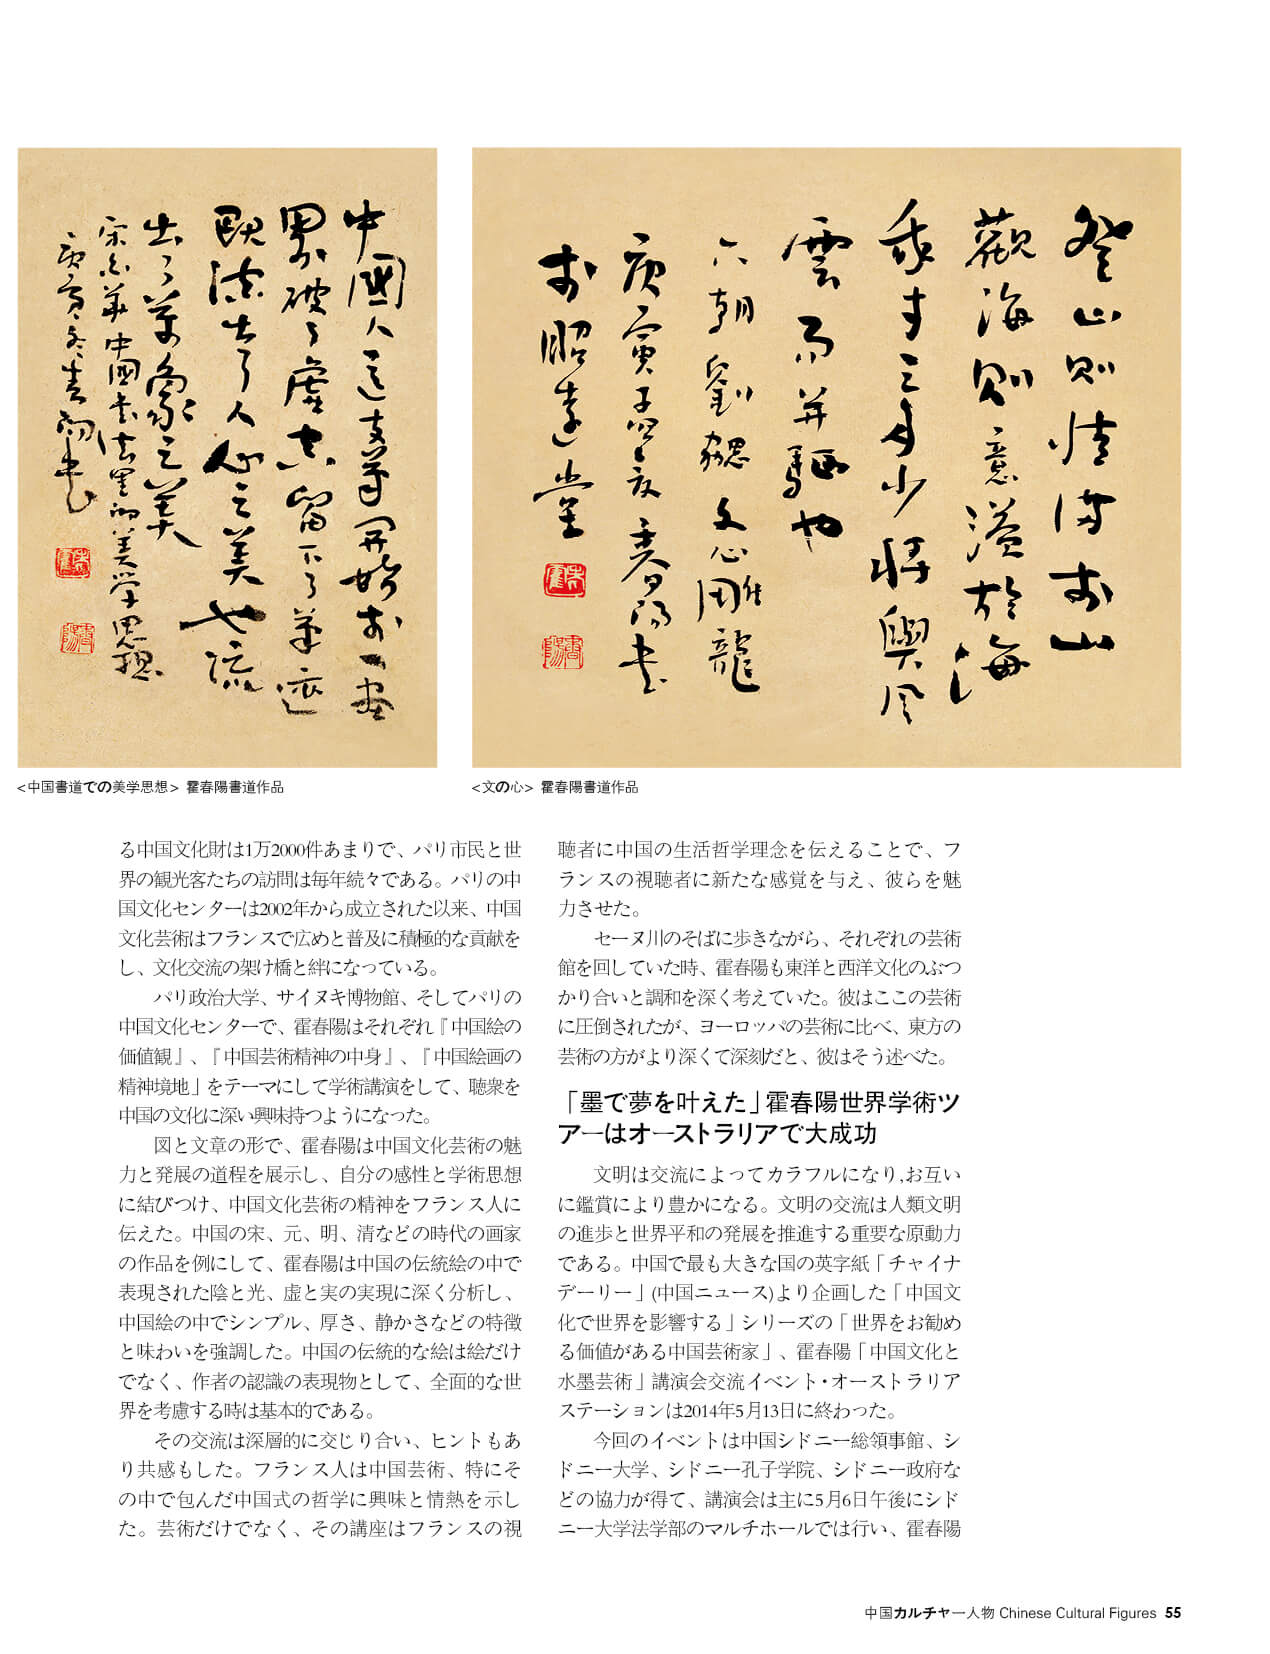 中國人這支筆開始於一畫
界破了虛空留下了筆迹
既流出了人心之美也流
出了萬象之美
宗白華中國書法里的美学思想
庚寅冬春陽書
登山則情滿於山
觀海則意溢於海
我才之多少將與風
雲而并驅也
六朝劉勰文心雕龍
庚寅子夜春陽書
於昭遠堂
<中国書道での美学思想> 霍春陽書道作品
<文の心> 霍春陽書道作品
る中国文化財は1万2000件あまりで、パリ市民と世
界の観光客たちの訪問は毎年続々である。パリの中
国文化センターは2002年から成立された以来、中国
文化芸術はフランスで広めと普及に積極的な貢献を
し、文化交流の架け橋と絆になっている。
パリ政治大学、サイヌキ博物館、そしてパリの
中国文化センターで、霍春陽はそれぞれ『中国絵の
価値観』、『中国芸術精神の中身』、『中国絵画の
精神境地」をテーマにして学術講演をして、聴衆を
中国の文化に深い興味持つようになった。
図と文章の形で、霍春陽は中国文化芸術の魅
力と発展の道程を展示し、自分の感性と学術思想
に結びつけ、中国文化芸術の精神をフランス人に
伝えた。中国の宋、元、明、清などの時代の画家
の作品を例にして、霍春陽は中国の伝統絵の中で
表現された陰と光、虚と実の実現に深く分析し、
中国絵の中でシンプル、厚さ、静かさなどの特徴
と味わいを強調した。中国の伝統的な絵は絵だけ
でなく、作者の認識の表現物として、全面的な世
界を考慮する時は基本的である。
その交流は深層的に交じり合い、ヒントもあ
り共感もした。フランス人は中国芸術、特にそ
の中で包んだ中国式の哲学に興味と情熱を示し
た。芸術だけでなく、その講座はフランスの視
聴者に中国の生活哲学理念を伝えることで、フ
ランスの視聴者に新たな感覚を与え、彼らを魅
力させた。
セーヌ川のそばに歩きながら、それぞれの芸術
館を回していた時、霍春陽も東洋と西洋文化のぶつ
かり合いと調和を深く考えていた。彼はここの芸術
に圧倒されたが、ヨーロッパの芸術に比べ、東方の
芸術の方がより深くて深刻だと、彼はそう述べた。
「墨で夢を叶えた」霍春陽世界学術ツ
アーはオーストラリアで大成功
文明は交流によってカラフルになり,お互い
に鑑賞により豊かになる。文明の交流は人類文明
の進歩と世界平和の発展を推進する重要な原動力
である。中国で最も大きな国の英字紙「チャイナ
デーリー」(中国ニュース)より企画した「中国文
化で世界を影響する」シリーズの「世界をお勧め
る価値がある中国芸術家」、霍春陽「中国文化と
水墨芸術」講演会交流イベント・オーストラリア
ステーションは2014年5月13日に終わった。
今回のイベントは中国シドニー総領事館、シ
ドニー大学、シドニー孔子学院、シドニー政府な
どの協力が得て、講演会は主に5月6日午後にシド
ニー大学法学部のマルチホールでは行い、霍春陽
中国カルチャー人物 Chinese Cultural Figures 55